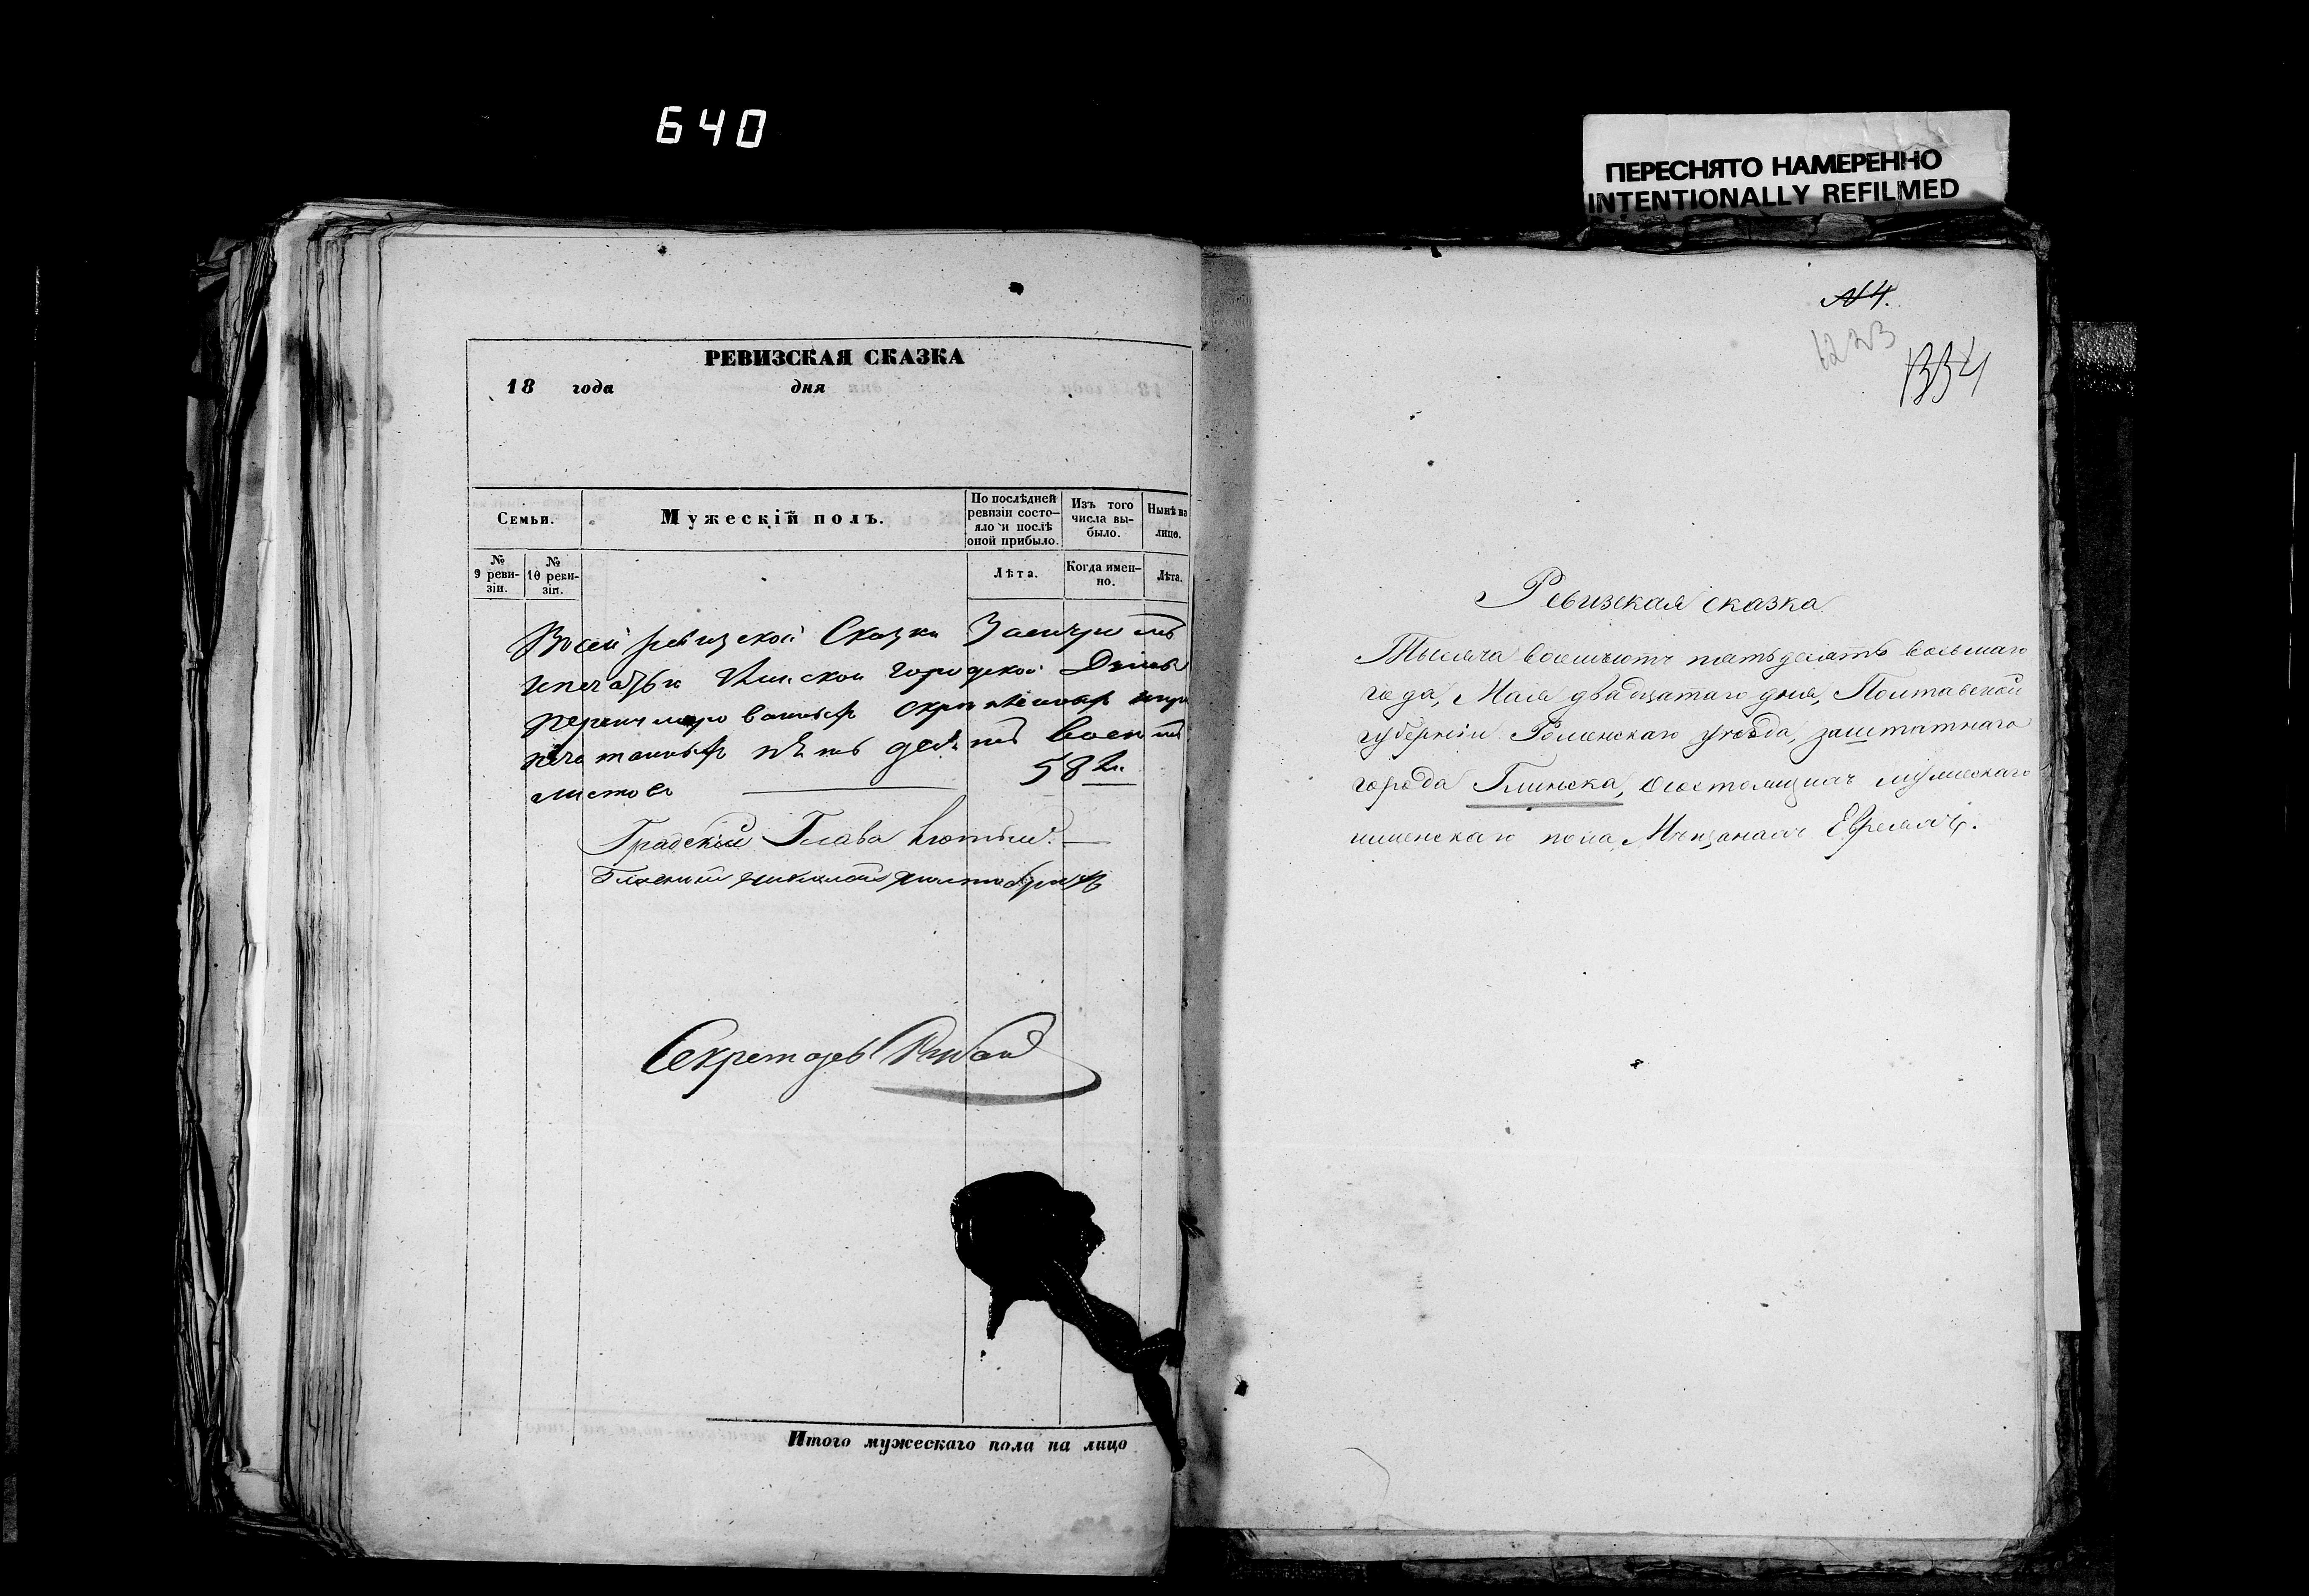 640
ПЕРЕСНЯТО НАМЕРЕННО
INTENTIONALLY REFILMED
РЕВИЗСКАЯ СКАЗКА
18 года дня
Семьи.
Мужескій полъ.
По послѣдней ревизіи состояло и послѣ оной прибыло.
Изъ того числа выбыло.
Нынѣ на лицо.
№ 9 ревизіи.
№ 10 ревизіи.
Лѣта.
Когда именно.
Лѣта.
Восей ревизской Сказки За
печатью городской Думы
пять десять восемь
листовъ 58 л.
Градскій Глава
Секретарь
Итого мужескаго пола на лицо
N 4.
1223
1334
Ревизская сказка
Тысяча восемьсотъ пятьдесятъ восьмаго
года, Мая двадцатаго дня, Полтавской
губерніи Роменскаго уѣзда, заштатнаго
города Глинска, о состоящихъ мужескаго
и женскаго пола, Мѣщанахъ Евреяхъ.